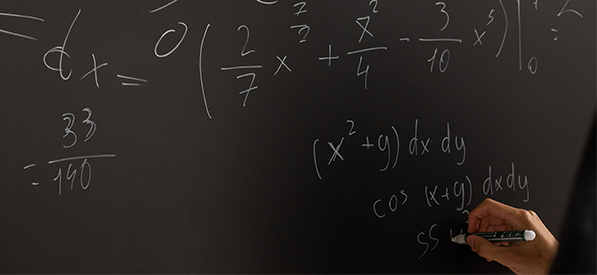 dx = ( 2/7 x^(7/2) + x^2/4 - 3/10 x^5 ) |
= 33/140
(x^2 + y) dx dy
cos (x+y) dx dy